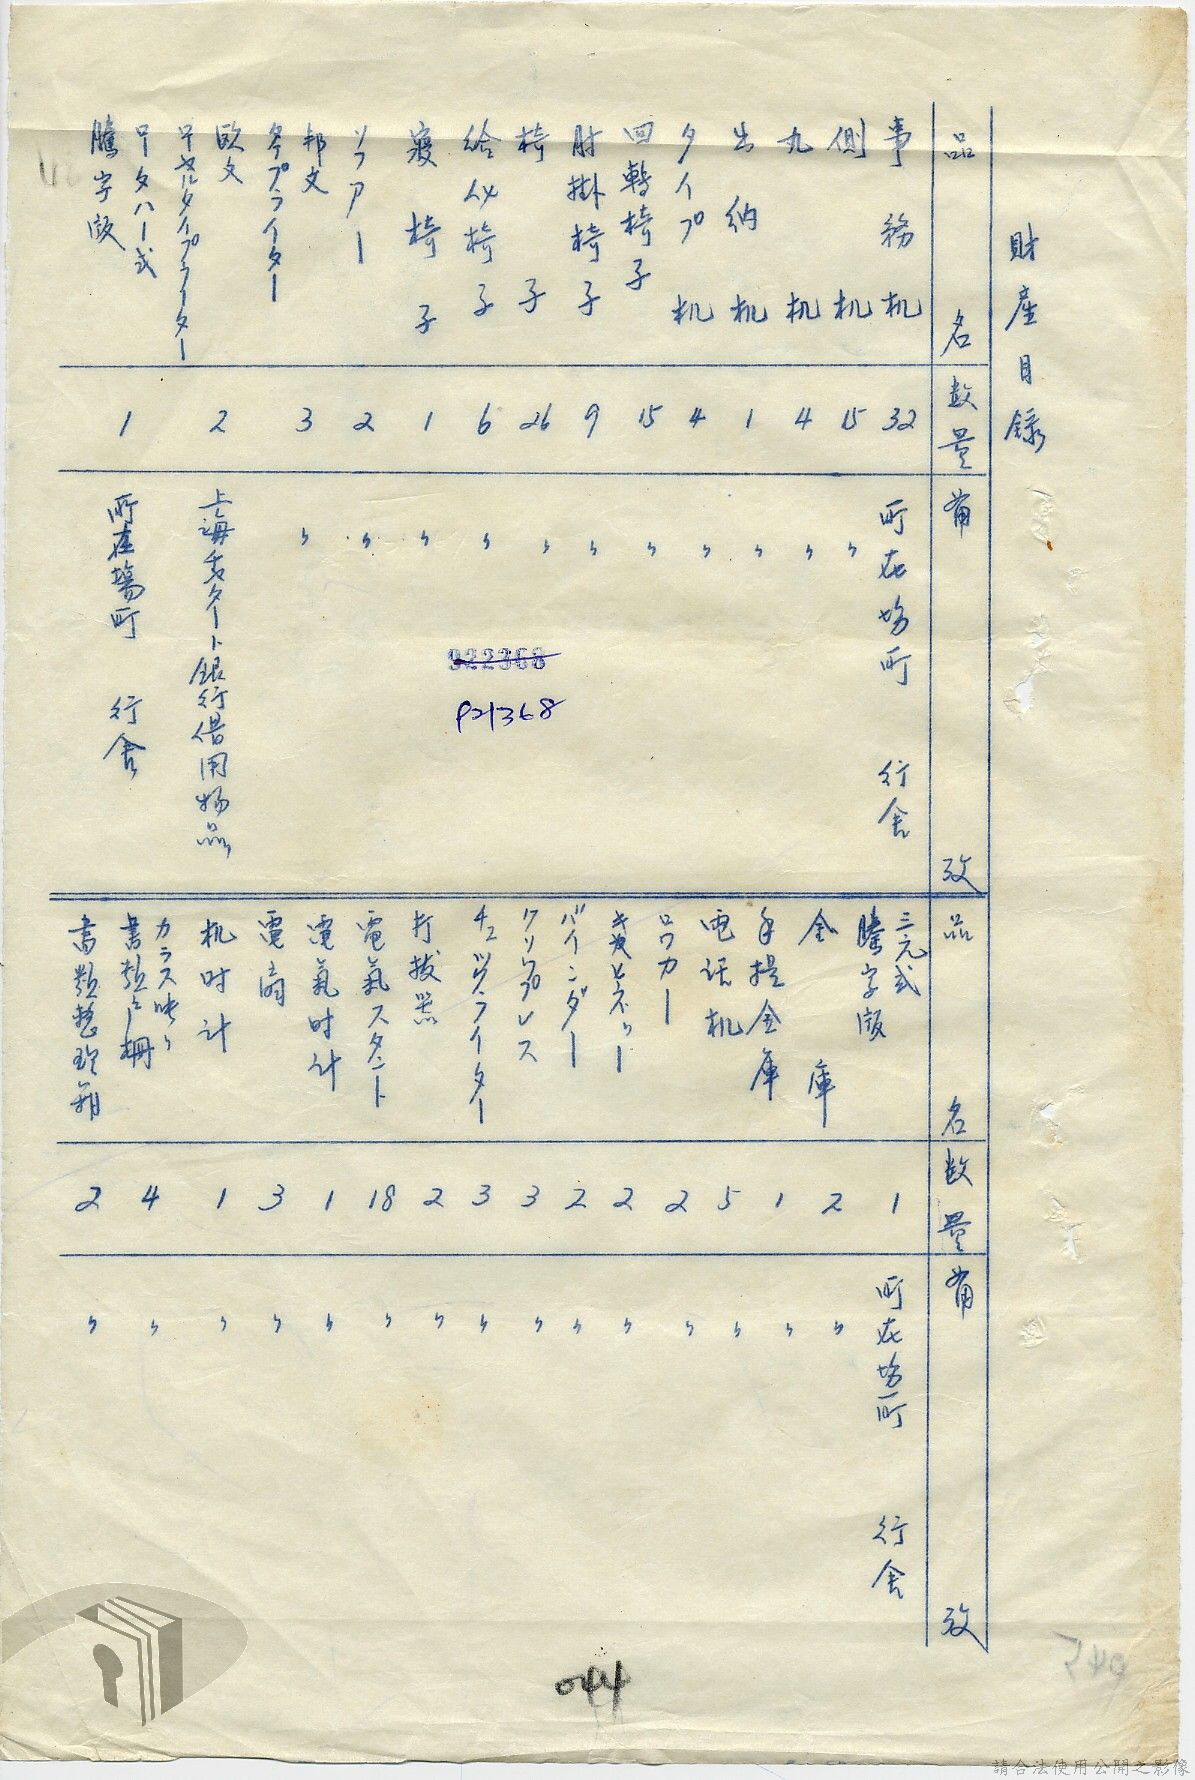 財産目録
品名 数量 備攷
事務机 32 所在場所 行舎
側机 15 〃
丸机 4 〃
出納机 1 〃
タイプ机 4 〃
回轉椅子 15 〃
肘掛椅子 9 〃
椅子 26 〃
給仕椅子 6 〃
寝椅子 1 〃
ソファー 2 〃
邦文タイプライター 3 〃
欧文ローヤルタイプライター 2 上海チャータート銀行借用物品
ロータハー式謄字版 1 所在場所 行舎
品名 数量 備攷
三元式謄字版 1 所在場所 行舎
金庫 2 〃
手提金庫 1 〃
电话机 5 〃
ロッカー 2 〃
キャビネット 2 〃
バインダー 2 〃
3 〃
チェックライター 3 〃
打抜器 2 〃
電氣スタント 18 〃
電氣时计 1 〃
電扇 3 〃
机时计 1 〃
カラス映り書類棚 4 〃
書類整理箱 2 〃
922368
P21368
044
請合法使用公開之影像